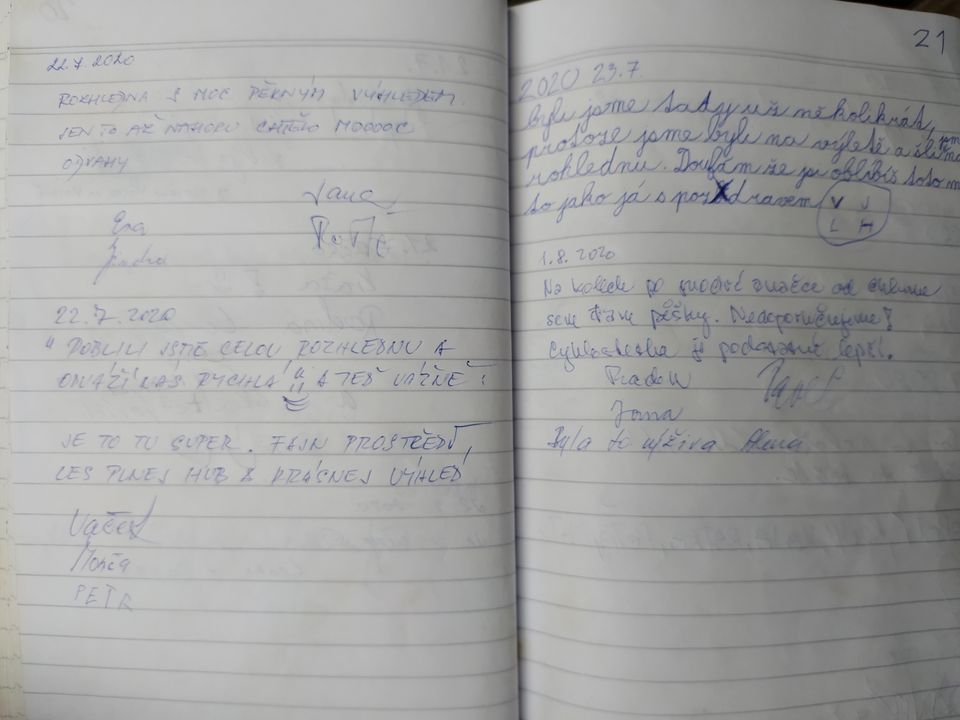 22.7.2020
ROZHLEDNA S MOC PĚKNÝM VÝHLEDEM.
JEN TO AŽ NAHORU CHTĚLO MOOOOC
ODVAHY
Jana
Eva
Jindra
22.7.2020
" POBLILI JSME CELOU ROZHLEDNU A
ODVÁŽÍ NÁS RYCHLÁ " A TEĎ VÁŽNĚ :
JE TO TU SUPER. FAJN PROSTŘEDÍ,
LES PLNEJ HUB A KRÁSNEJ VÝHLED
Vašek
Monča
PETR
21
2020 23.7.
byli jsme tady už několikrát,
protože jsme byli na výletě a šli na
rohlednu. Doufám že jsi oblíbíš toto mí
to jako já s pozdravem V J
L H
1.8.2020
Na kolech po modré značce od
sem pěšky. Nedoporučujeme!
Cyklostezka je podstatně lepší.
Radek Pavel
Jana
Byla to výživa Alena